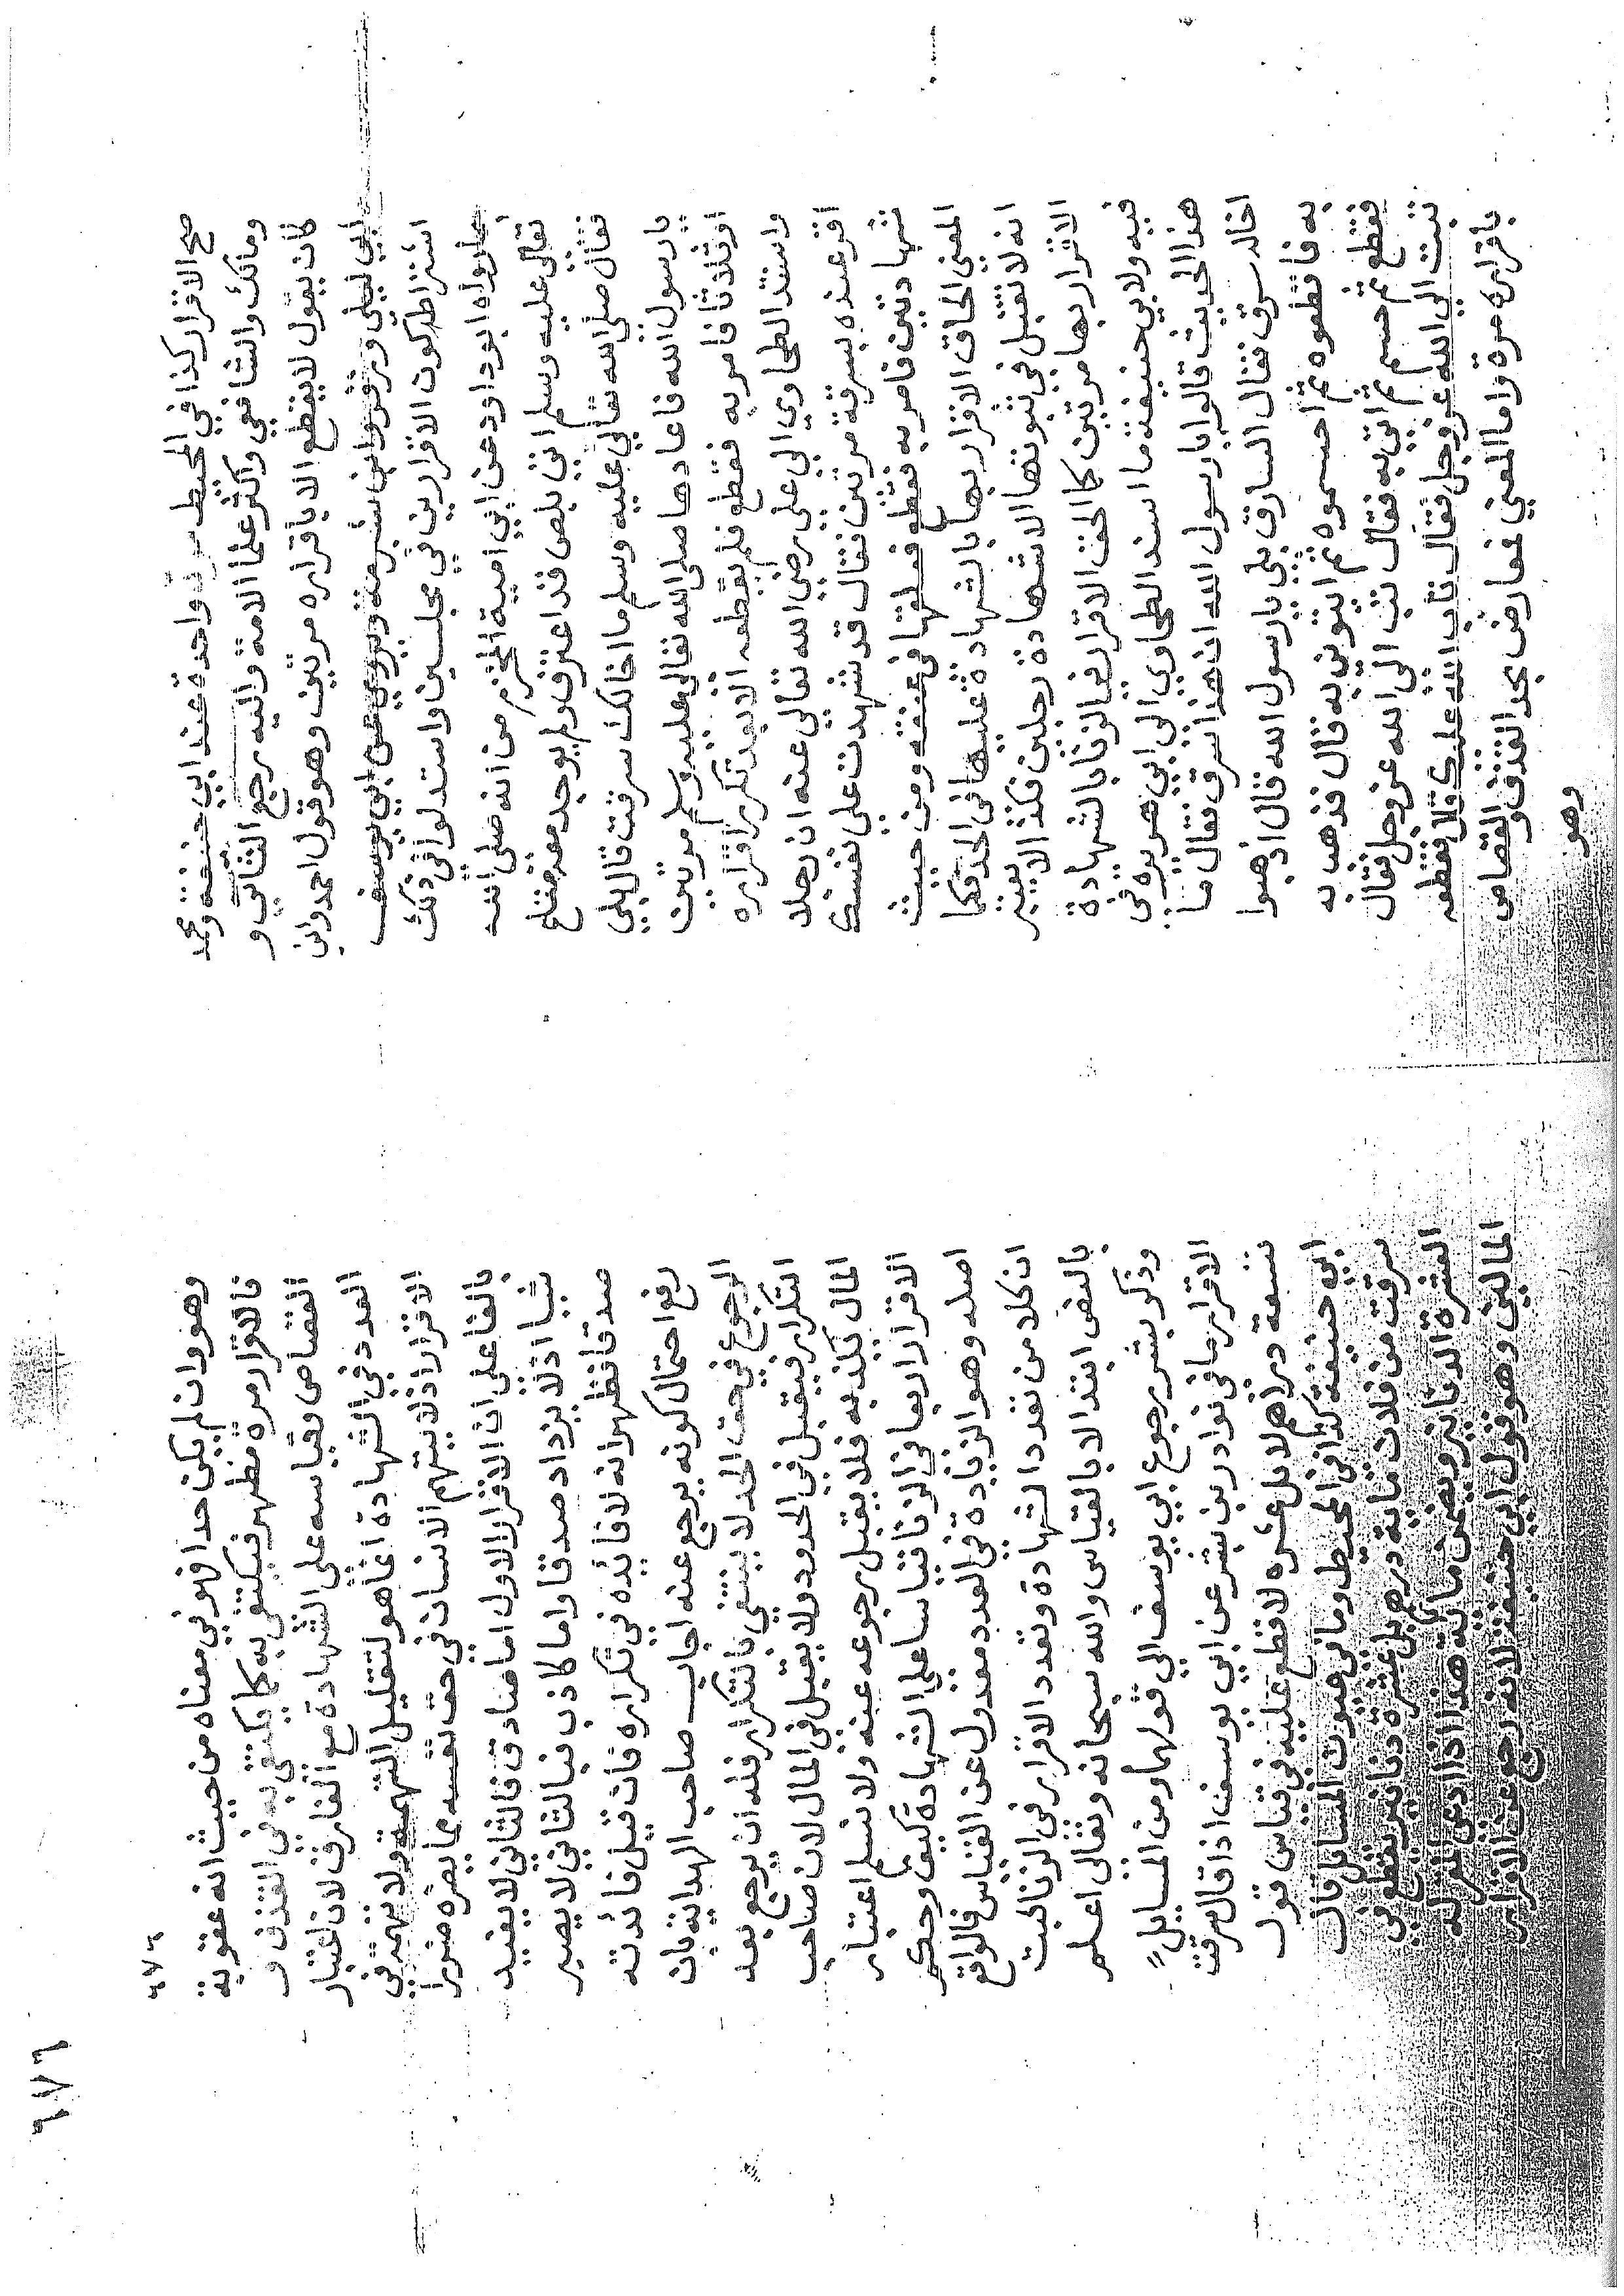 صح الاقرار كذا في المحيط مرة واحدة عند ابي حنيفة ومحمد
ومالك والشافعي واكثر علما الامة واليه رجع الثاني و
كان يقول لا يقطع الا باقراره مرتين وهو قول احمد وابن
ابي ليلي وزفر وابن شبرمة ويروي عن ابي يوسف
اشتراط كون الاقرارين في مجلسين واستدلوا في ذلك
بما رواه ابو داود عن ابي امية المخزومي انه صلي الله
تعالي عليه وسلم اتي بلص قد اعترف ولم يوجد معه متاع
فقال صلي الله تعالي عليه وسلم ما اخالك سرقت قال بلي
يا رسول الله فاعادها صلي الله تعالي عليه وسلم مرتين
او ثلاثا فامر به فقطع فلم يقطعه الا بعد تكرر اقراره
واستند الطحاوي الي علي رضي الله تعالي عنه ان رجلا
اقر عنده بسرقة مرتين فقال قد شهدت علي نفسك
شهادتين فامر به فقطع فعلقها في عنقه ومن حيث
المعني الحاق الاقرار بها بالشهادة عليها في الحد فكما
انه لا تقبل في ثبوتها الا شهادة رجلين فكذا لا يعتبر
الاقرار بها مرتين كما الحق الاقرار في الزنا بالشهادة
فيه ولابي حنيفة ما اسند الطحاوي الي ابي هريرة في
هذا الحديث قالوا يا رسول الله ان هذا سرق فقال ما
اخاله سرق فقال السارق بلي يا رسول الله قال اذهبوا
به فاقطعوه ثم احسموه ثم ايتوني به قال فذهب به
فقطع ثم حسم ثم اتي به فقال تب الي الله عز وجل فقال
تبت الي الله عز وجل فقال تاب الله عليك قالا فقطعه
باقراره مرة واما المعني فمعارض بحد القذف والقصاص
وهو
٦٧٦
٦٧٦
وهو وان لم يكن حدا فهو في معناه من حيث انه عقوبة
فالاقرار مرة مظهر فيكتفي به كما يكتفي به في القذف و
القصاص وقياسه علي الشهادة مع الفارق لان اعتبار
العدد في الشهادة انما هو لتقليل التهمة ولا تهمة في
الاقرار اذ لا يتهم الانسان في حق نفسه بما يضره ضررا
بالغا علي ان الاقرار الاول اما صادق فالثاني لا يفيد
شيا اذ لا يزداد صدقا واما كاذب فبالثاني لا يصير
صدقا فظهر انه لا فائدة في تكراره فان قيل فائدته
رفع احتمال كونه يرجع عنه اجاب صاحب الهداية بان
الرجوع في حق الحد لا ينتفي بالتكرار فله ان يرجع بعد
التكرار فيقبل في الحدود ولا يقبل في المال لان صاحب
المال يكذبه فلا يقبل رجوعه عنه ولا نسلم اعتبار
الاقرار اربعا في الزنا قياسا علي الشهادة كيف وحكم
اصله وهو الزيادة في العدد معدول عن القياس فالواقع
ان كلا من تعدد الشهادة وتعدد الاقرار في الزنا ثبت
بالنص ابتدا لا بالقياس والله سبحانه وتعالي اعلم
وذكر بشر رجوع ابي يوسف الي قولهما ومن المسايل
الاقرار ما في نوادر بن بشر عن ابي يوسف اذا قال سرقت
تسعة دراهم لا بل عشرة لا قطع عليه في قياس قول
ابي حنيفة كذا في المحيط وما في عيون المسايل قال
سرقت من فلان مائة درهم بل عشرة دنانير يقطع في
العشرة الدنانير ويضمن مائة هذا اذا ادعي المقر له
المالين وهو قول ابي حنيفة لانه رجع عن الاقرار